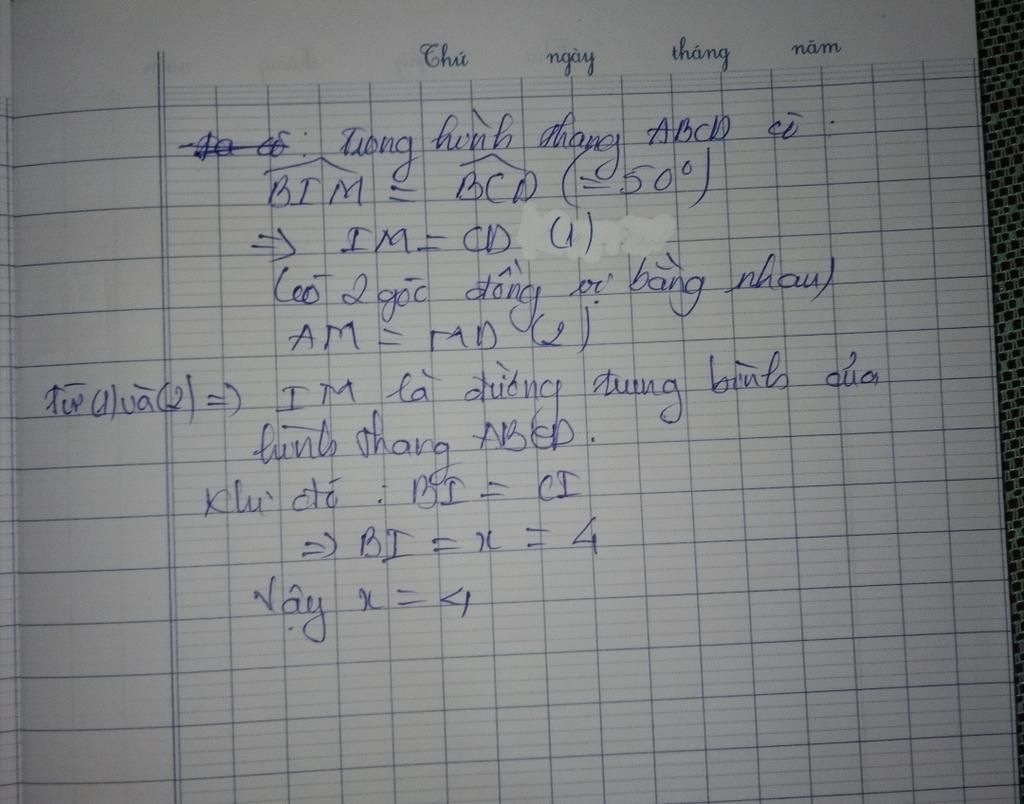 Thứ ngày tháng năm
Ta có: Trong hình thang ABCD có:
BIM = BCD (= 50°)
=> IM = CD (1)
(có 2 góc đồng vị bằng nhau)
AM = MD (2)
Từ (1) và (2) => IM là đường trung bình của
hình thang ABCD.
Khi đó : BI = CI
=> BI = x = 4
Vậy x = 4